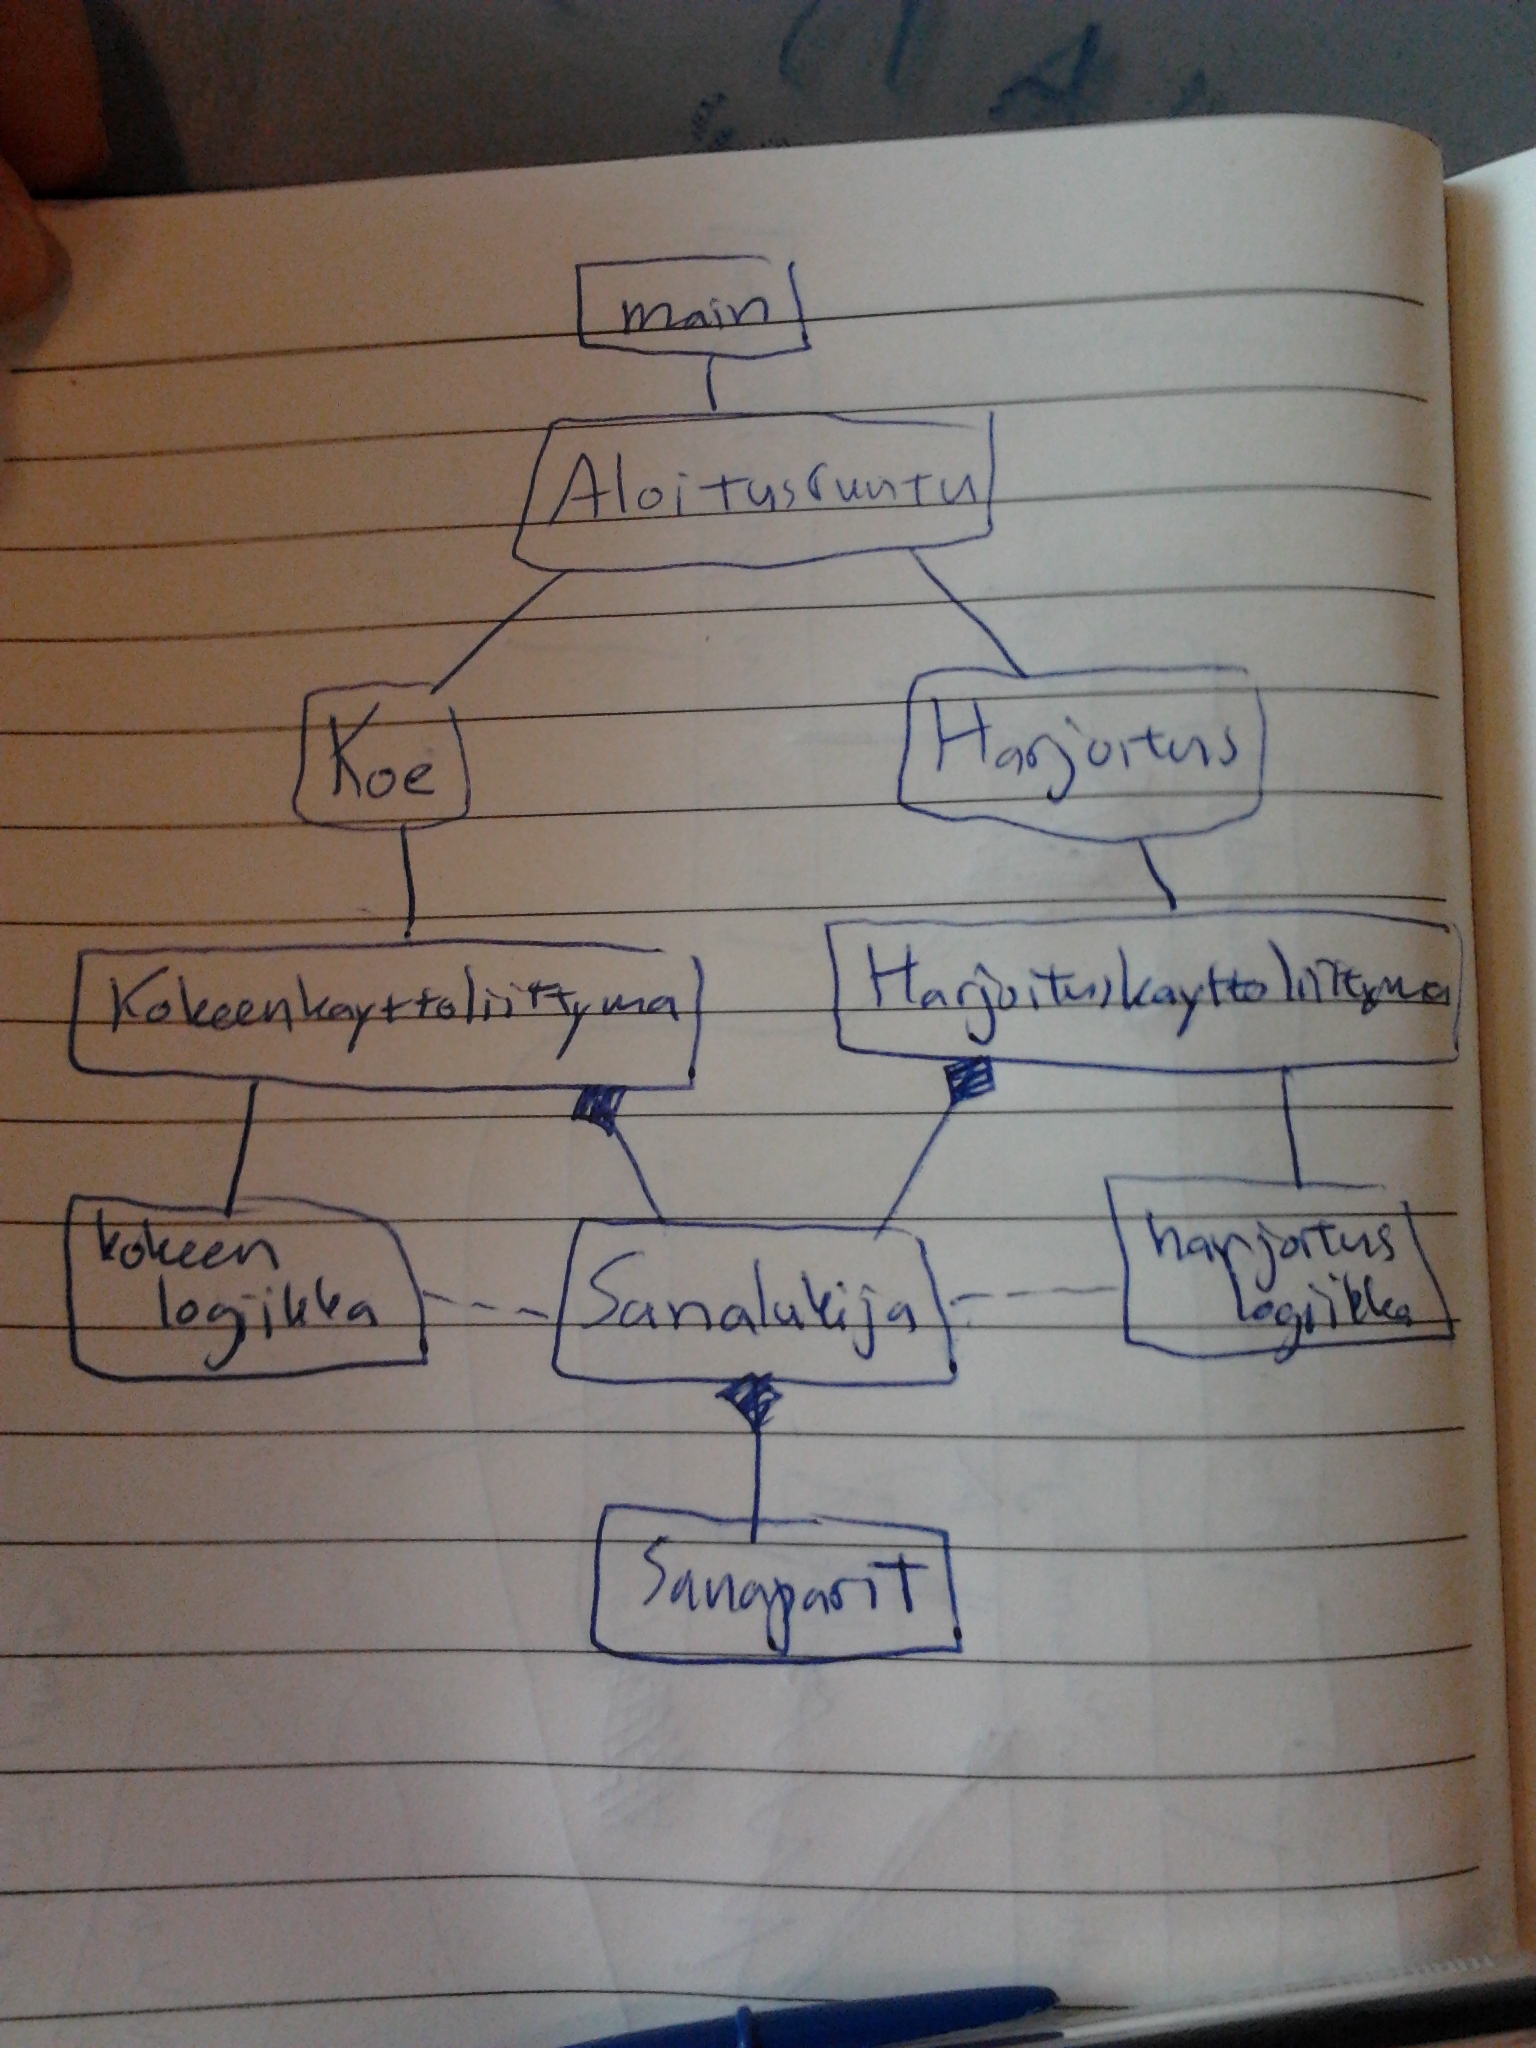 main
Aloitusruutu
Koe
Harjoitus
Kokeenkayttoliittyma
Harjoituskayttoliittyma
kokeen
logiikka
Sanalukija
harjoitus
logiikka
Sanaparit